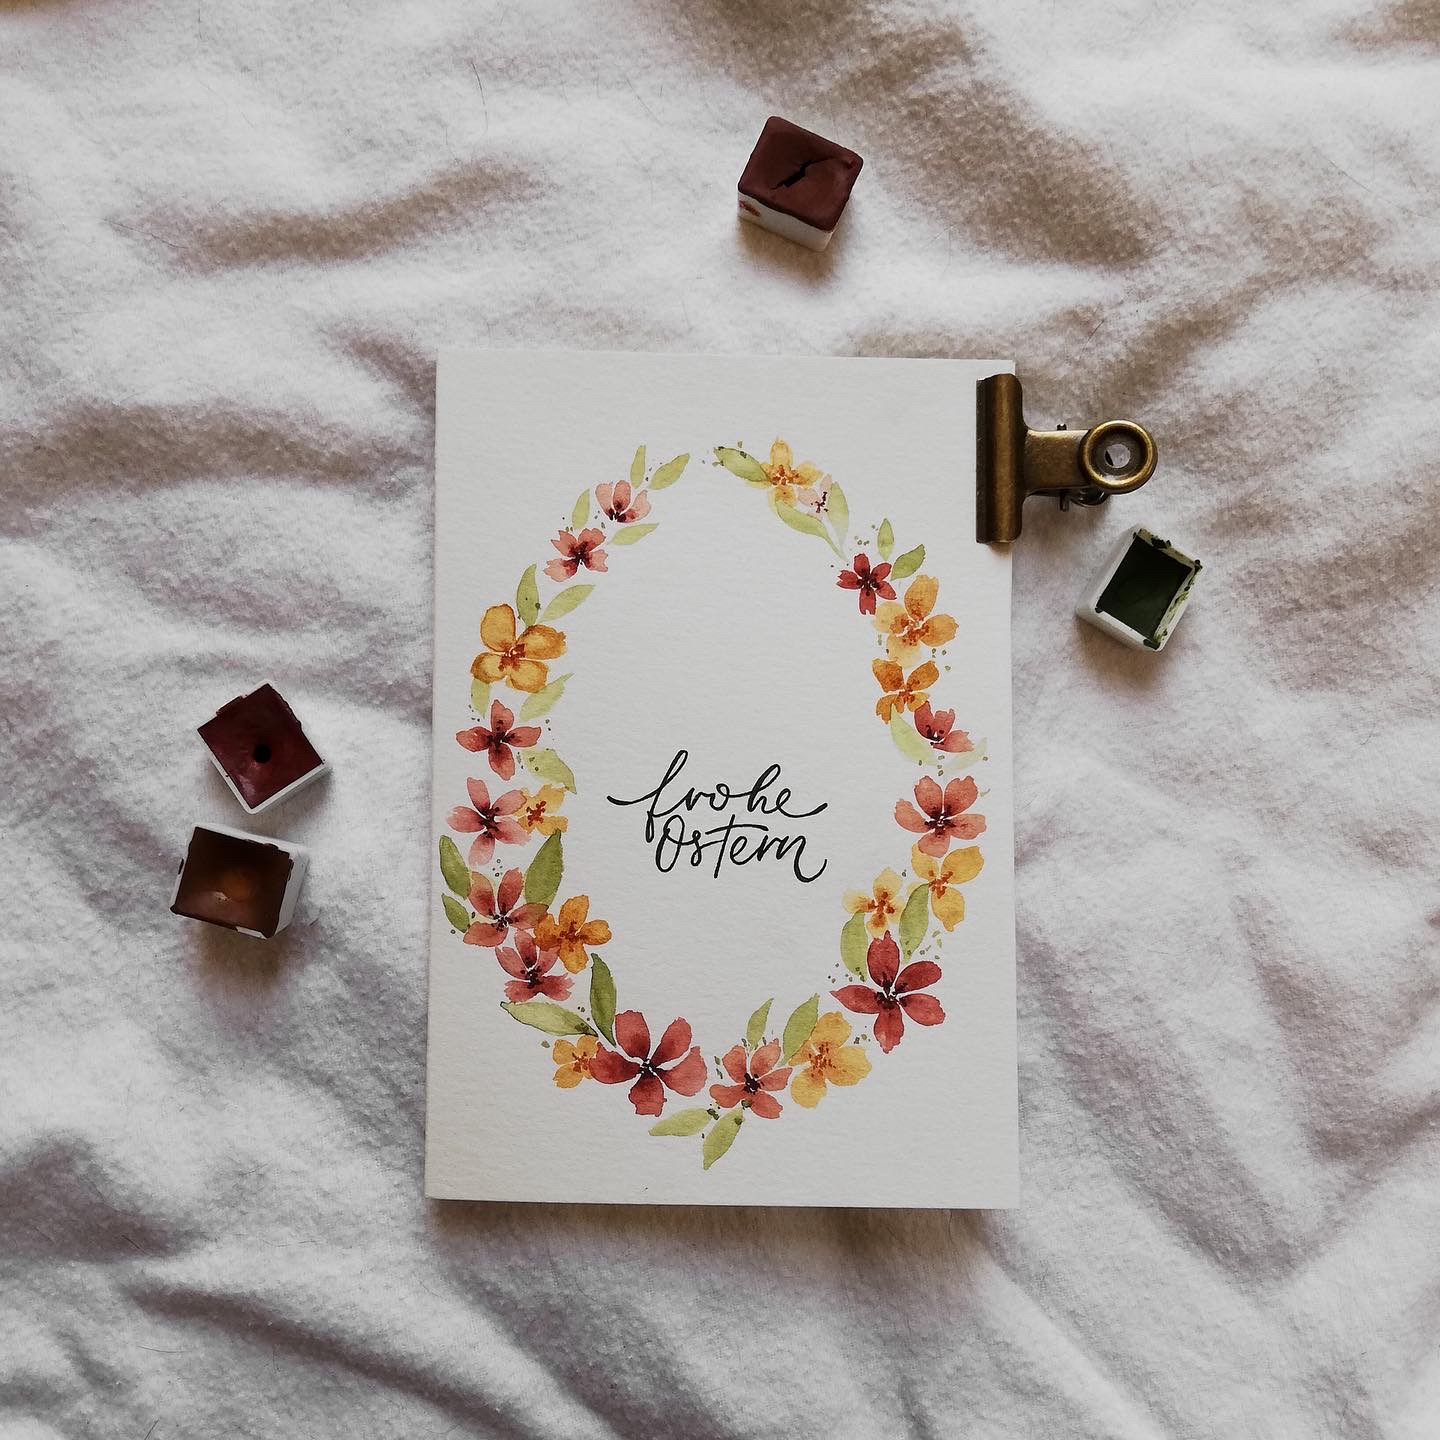 frohe
Ostern